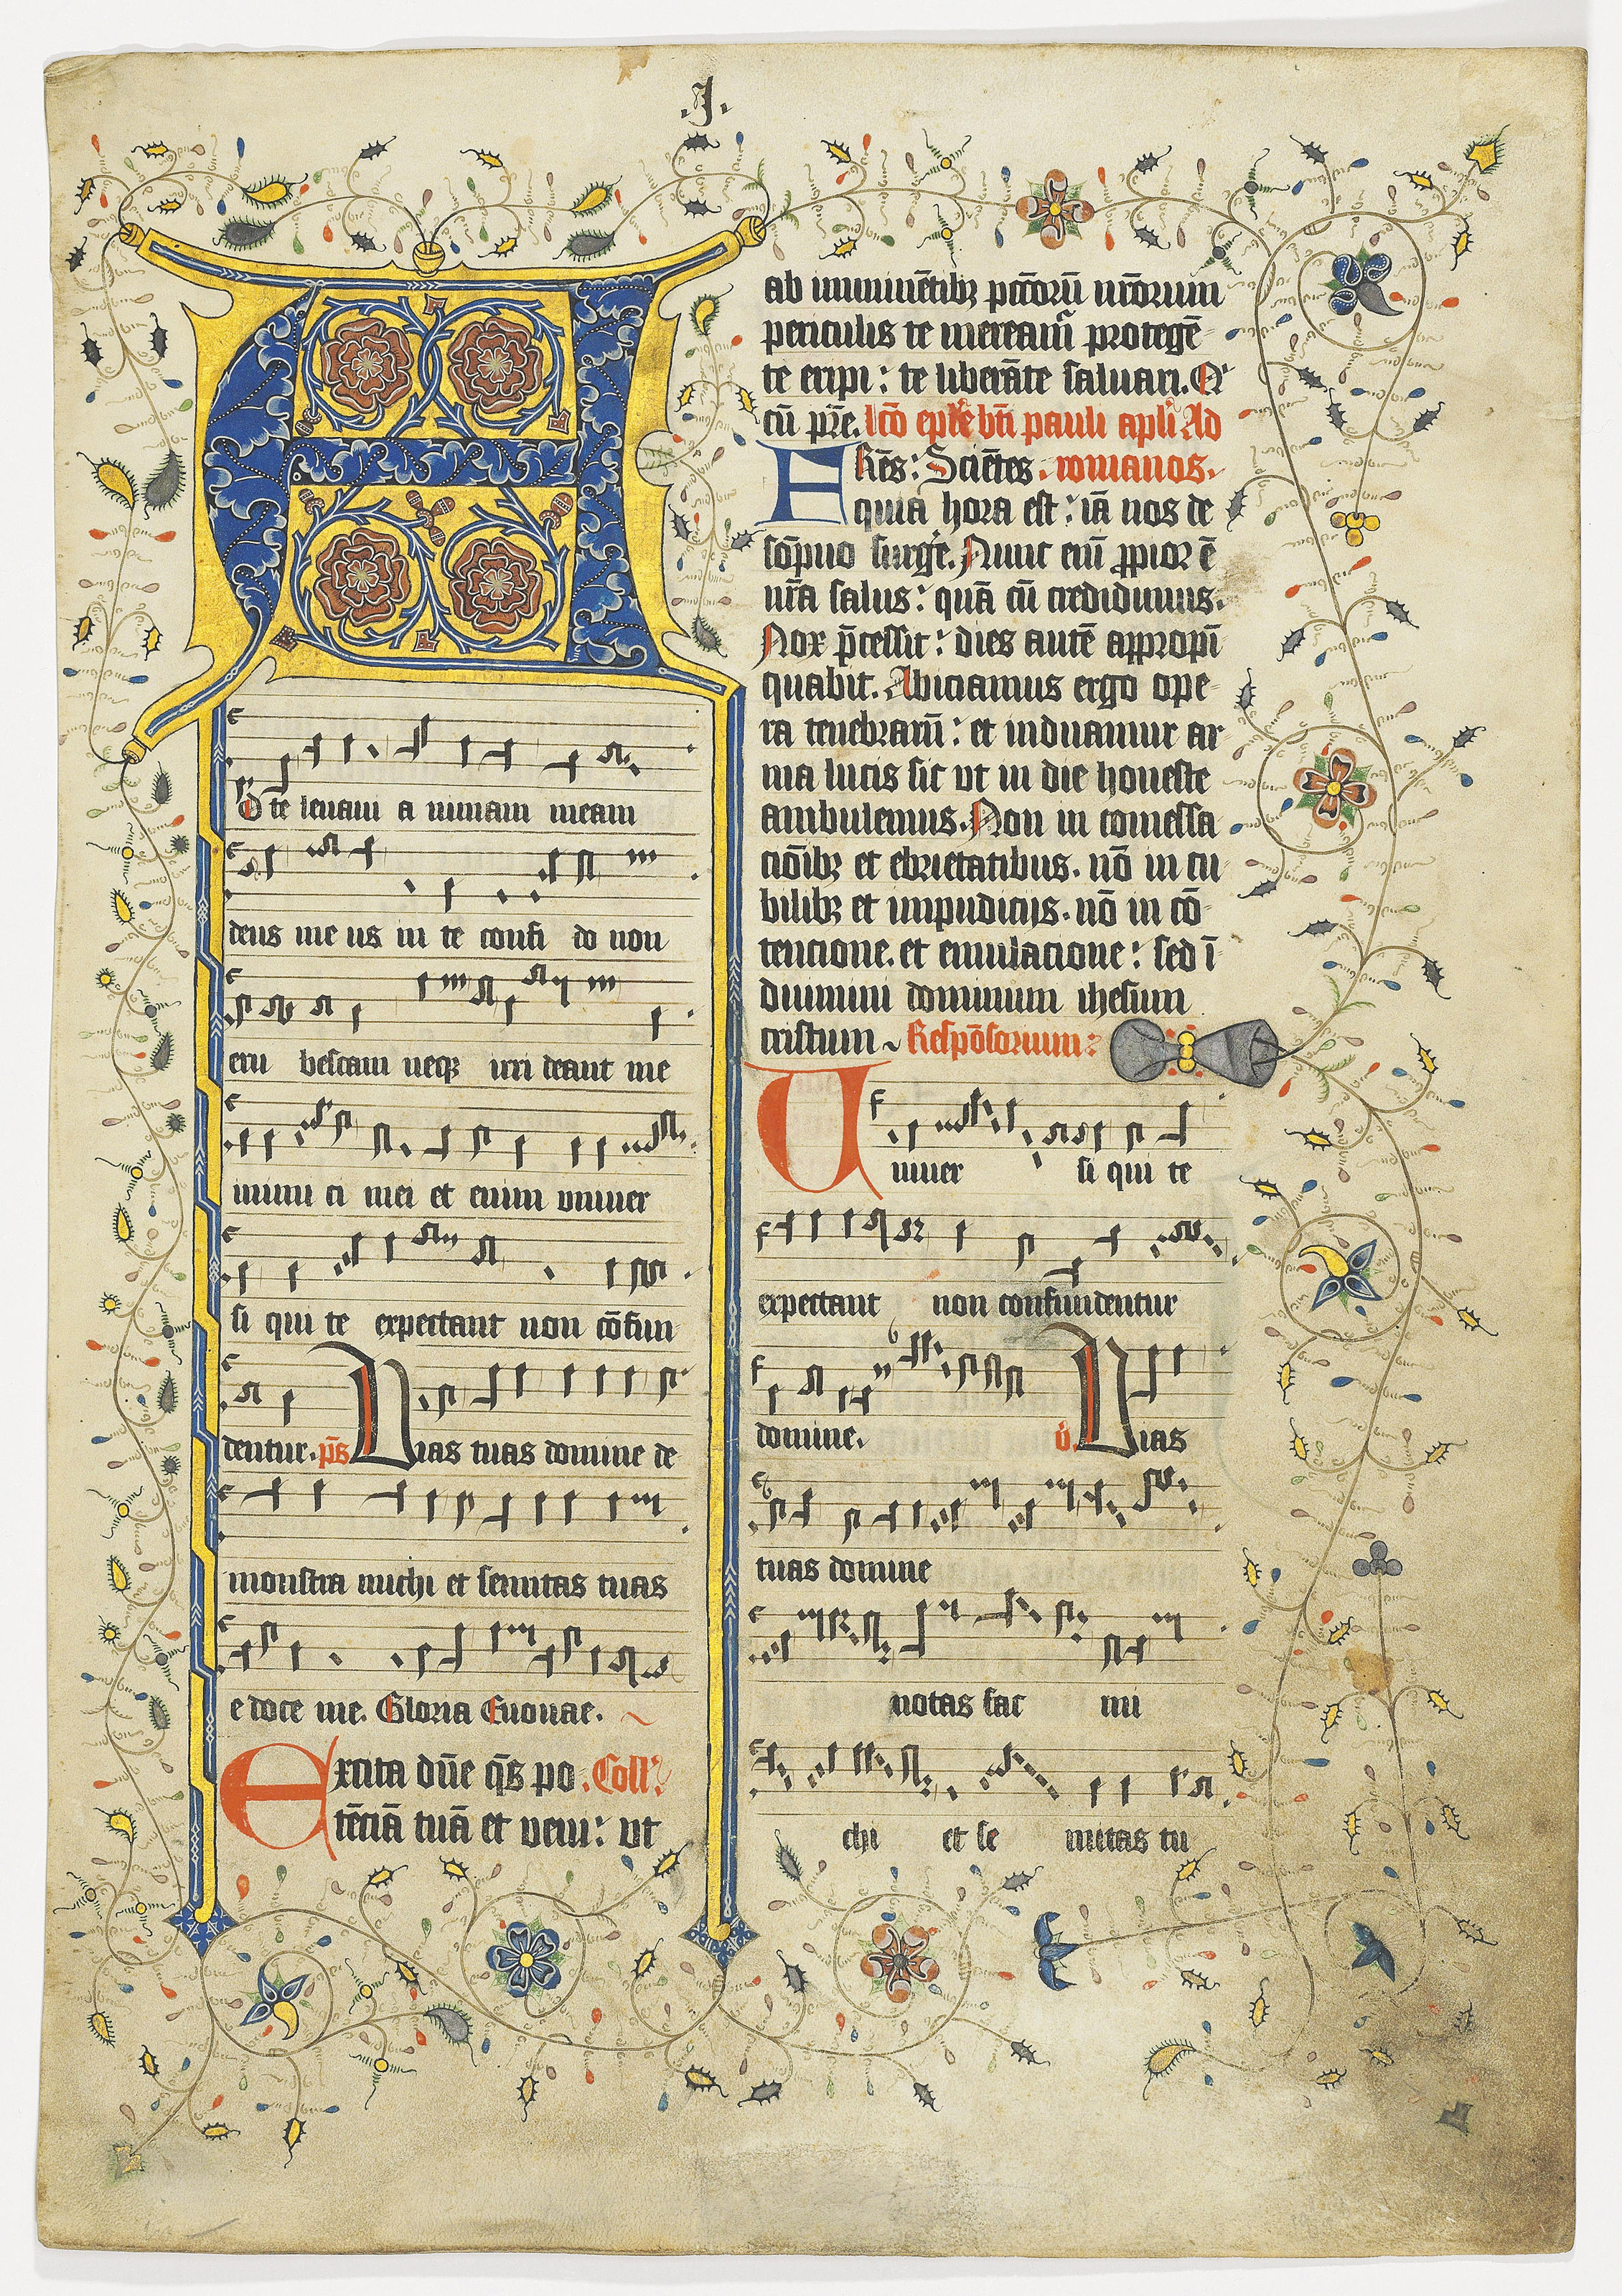 .J.
A
D te leuaui a nimam meam
deus me us in te confi do non
eru bescam neqꝫ irri deant me
inimi ci mei et enim vniuer
si qui te expectant non cōfun
dentur. p̄s Uias tuas domine de
monstra michi et semitas tuas
e doce me. Gloria Euouae.
Excita dn̄e q̄s po. Coll'
tēciā tuā et veni: ut
ab iminētibꝫ pctōrū nr̄orum
periculis te mereamr̄ protegē
te eripi: te liberāte saluari. Q'
cū pr̄e. lcō epl'e bt̄i pauli apl'i Ad
Fr̄es: Sciētes. romanos.
quia hora est: iā nos de
sōpno surge. Nunc eni ꝓpior ē
nr̄a salus: quā cū credidimus.
Nox p̄cessit: dies autē appropī
quabit. Abiciamus ergo ope
ra tenebrarū: et induamur ar
ma lucis sic vt in die honeste
ambulemus. Non in comessa
ciōibꝫ et ebrietatibus. nō in cu
bilibꝫ et impudiciis. nō in cō
tencione. et emulacione: sed ī
duimini dominum ihesum
cristum ~ Respōsorium:
Uniuer si qui te
expectant non confundentur
domine. v. Uias
tuas domine
notas fac mi
chi et se mitas tu